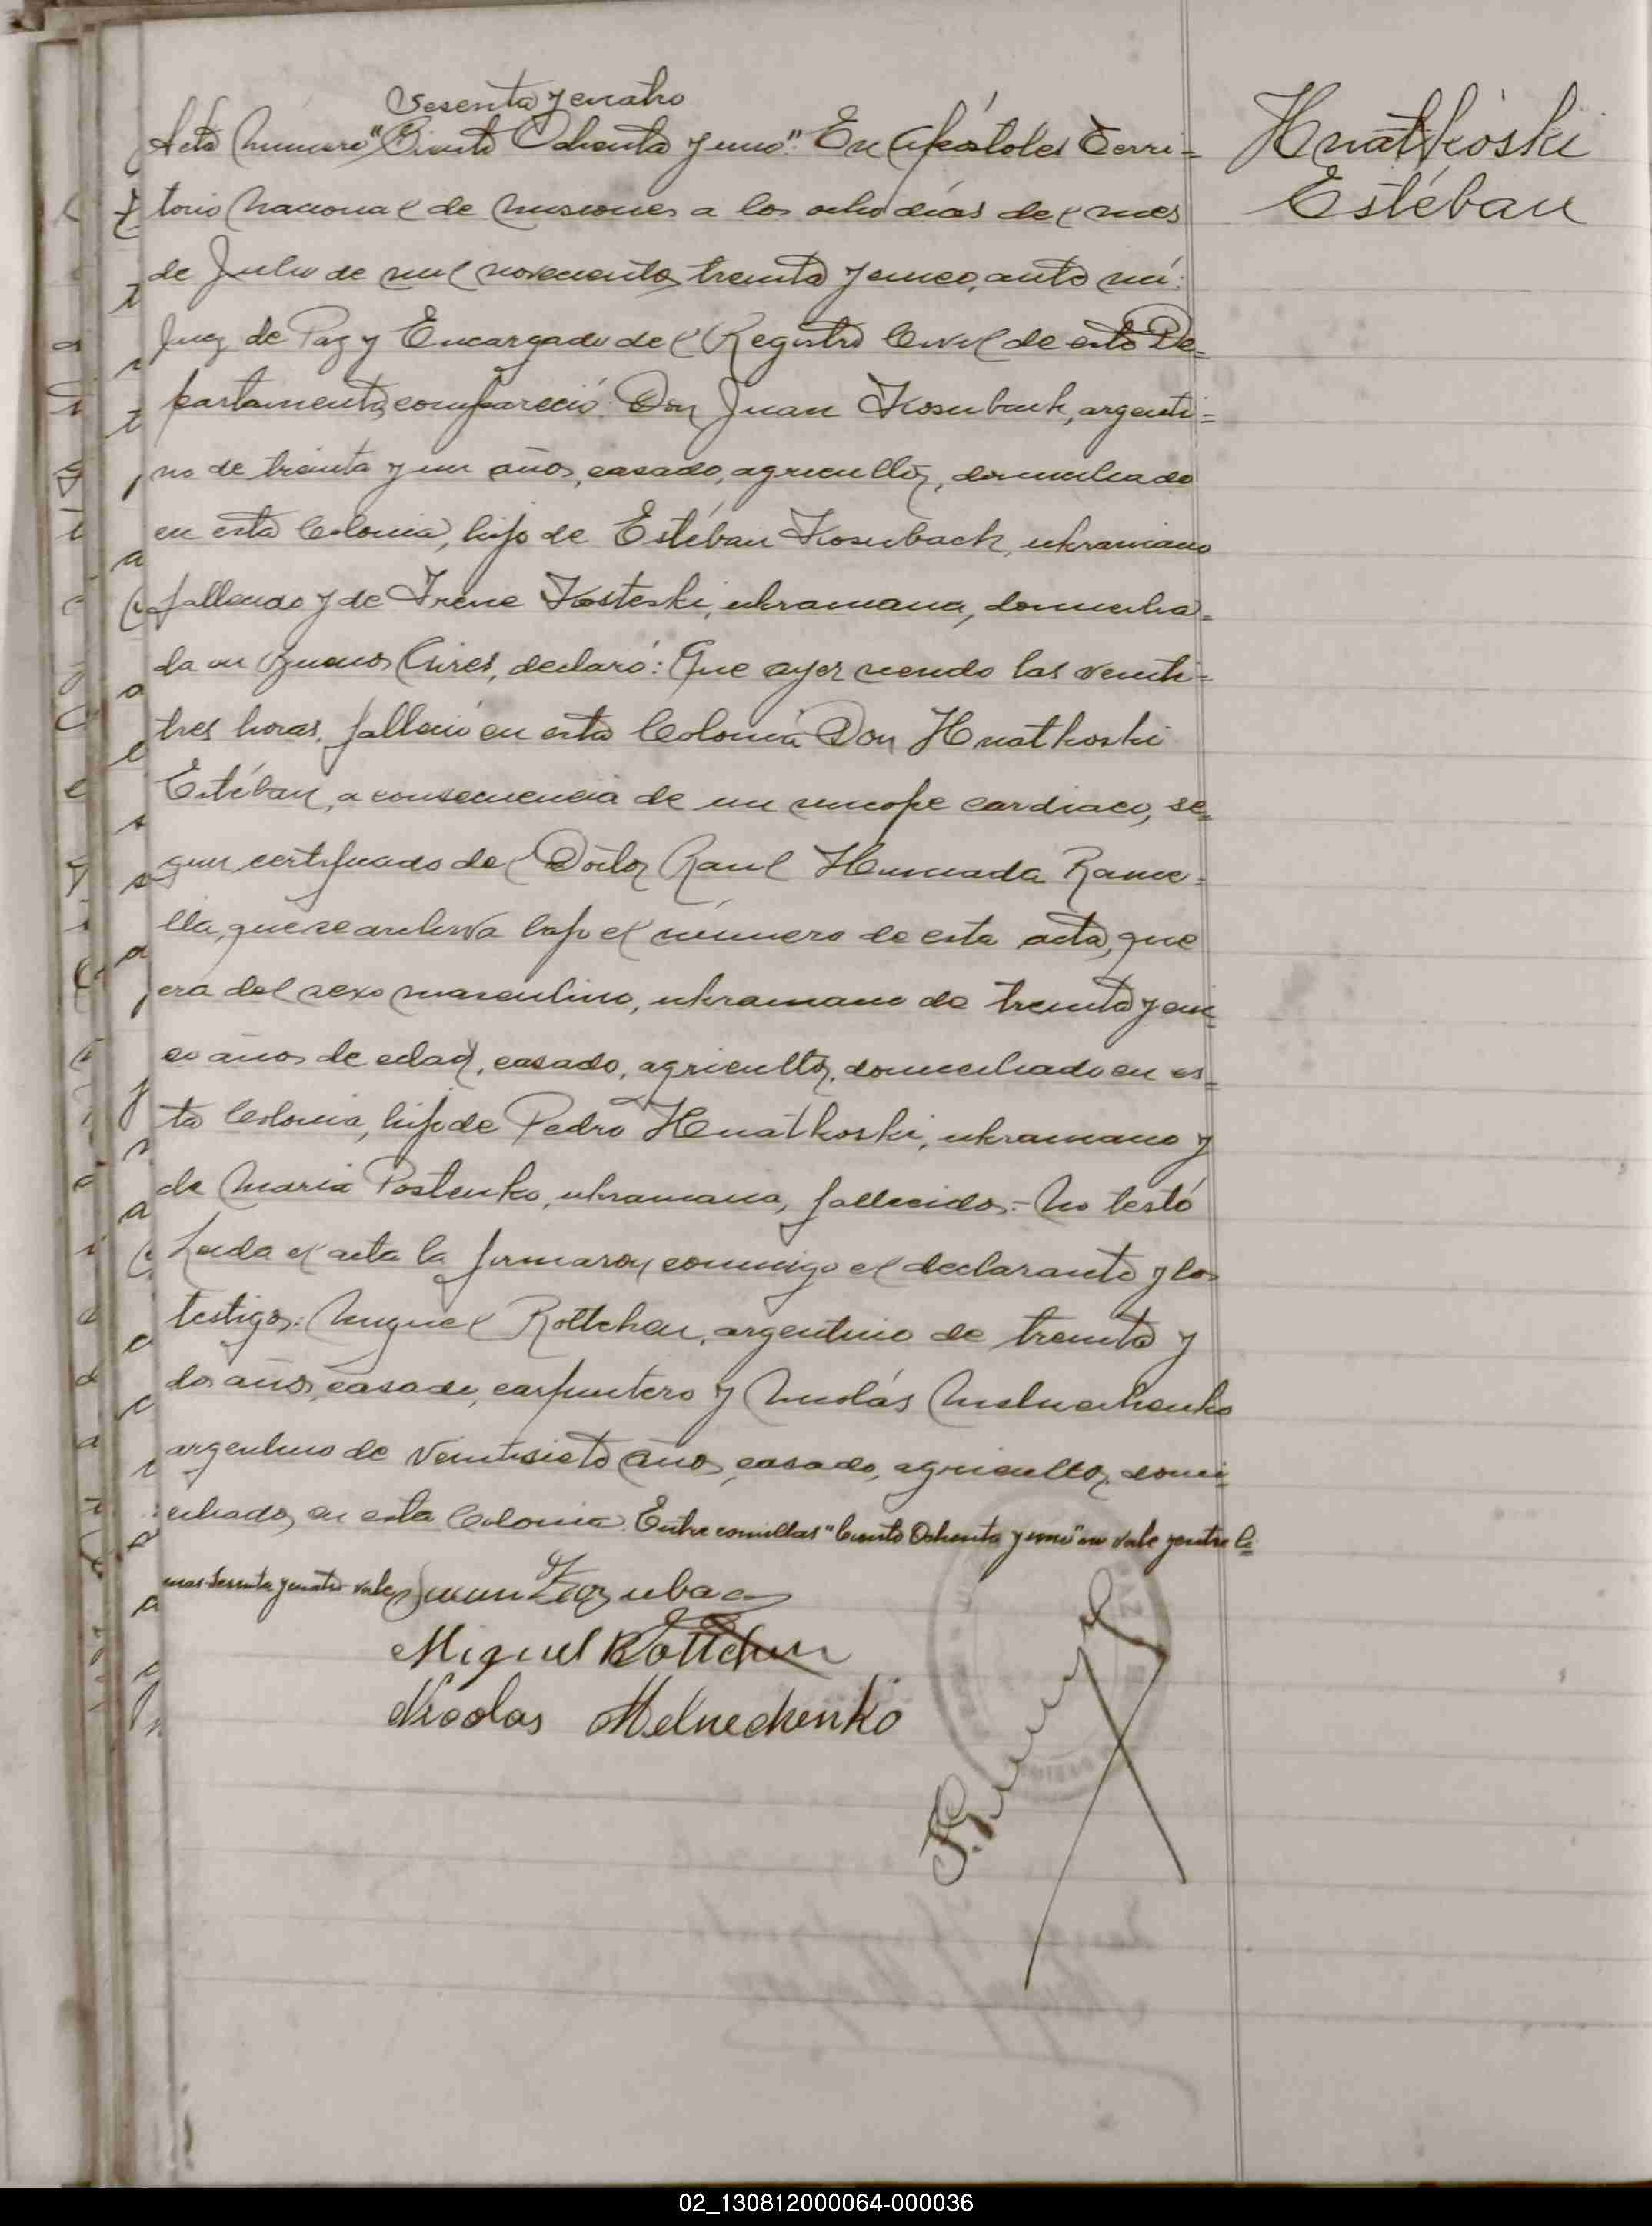 Sesenta y cuatro
Acta Número "Ciento Ochenta y uno". En Apóstoles Terri=
torio Nacional de Misiones a los ocho días del mes
de Julio de mil novecientos treinta y cinco, ante mí:
Juez de Paz y Encargado del Registro Civil de este De=
partamento, compareció: Don Juan Kosuback, argenti=
no de treinta y un años, casado, agricultor, domiciliado
en esta Colonia, hijo de Estéban Kosuback, ukraniano
fallecido y de Irene Kosteski, ukraniana, domicilia=
da en Buenos Aires, declaró: Que ayer siendo las veinti=
tres horas, falleció en esta Colonia Don Hnatkoski
Estéban, a consecuencia de un sincope cardiaco, se=
gun certificado del Doctor Raul Humada Rame=
lla, que se archiva bajo el número de esta acta, que
era del sexo masculino, ukraniano de treinta y cin=
co años de edad, casado, agricultor, domiciliado en es=
ta Colonia, hijo de Pedro Hnatkoski, ukraniano y
de María Postenko, ukraniana, fallecidos.- No testó
Leida el acta la firmaron conmigo el declarante y los
testigos: Miguel Rottchen, argentino de treinta y
dos años, casado, carpintero y Nicolás Melnechenko
argentino de veintisiete años, casado, agricultor, domi=
ciliados en esta Colonia. Entre comillas "Ciento Ochenta y uno" no vale y entre li=
neas sesenta y cuatro vale
Juan
Miguel Rottchen
Nicolas Melnechenko
Hnatkoski
Estéban
02_130812000064-000036